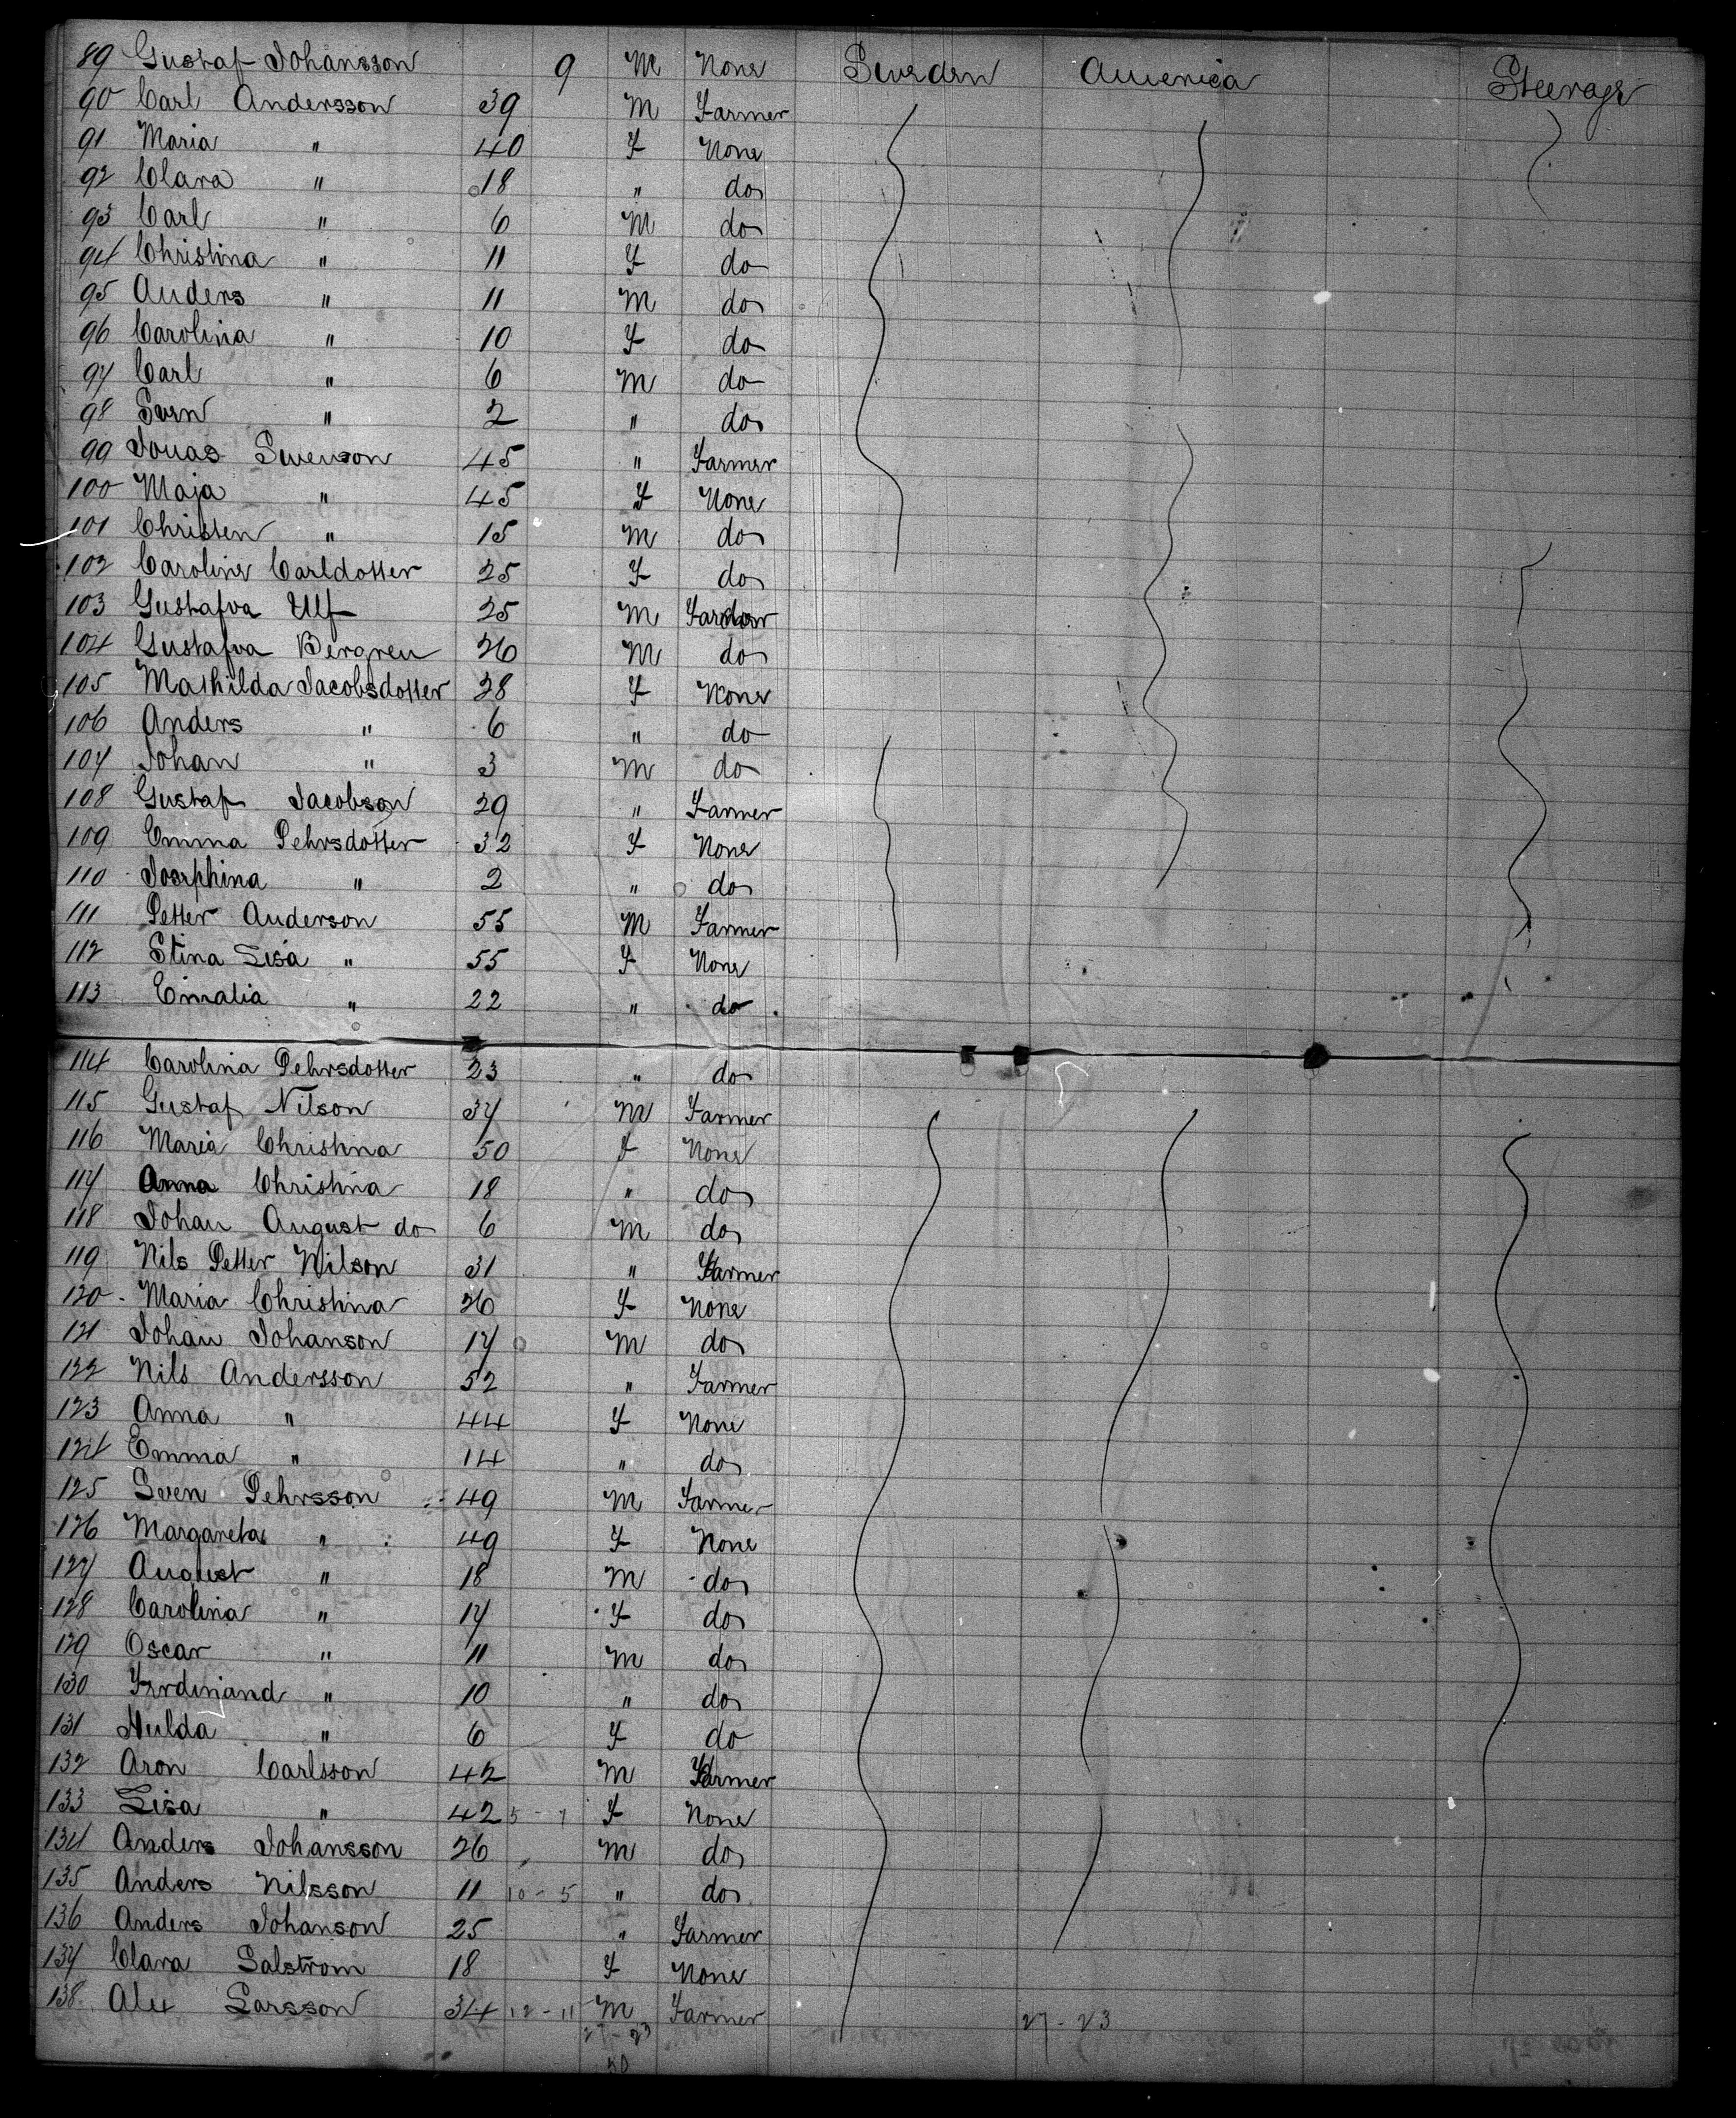 89 Gustaf Johansson 9 M None Sweden America Steerage
90 Carl Andersson 39 M Farmer
91 Maria " 40 F None
92 Clara " 18 " do
93 Carl " 6 M do
94 Christina " 11 F do
95 Anders " 11 M do
96 Carolina " 10 F do
97 Carl " 6 M do
98 Sven " 2 " do
99 Jonas Swenson 45 " Farmer
100 Maja " 45 F None
101 Christen " 15 M do
102 Caroline Carldotter 25 F do
103 Gustafva Ulf 25 M
104 Gustafva Bergren 26 M do
105 Mathilda Jacobsdotter 28 F None
106 Anders " 6 " do
107 Johan " 3 M do
108 Gustaf Jacobson 29 " Farmer
109 Emma Pehrsdotter 32 F None
110 Josephina " 2 " do
111 Petter Anderson 55 M Farmer
112 Stina Lisa " 55 F None
113 Emalia " 22 " do
114 Carolina Pehrsdotter 23 " do
115 Gustaf Nilson 37 M Farmer
116 Maria Christina 50 F None
117 Anna Christina 18 " do
118 Johan August do 6 M do
119 Nils Petter Nilson 31 " Farmer
120 Maria Christina 26 F None
121 Johan Johanson 17 M do
122 Nils Andersson 52 " Farmer
123 Anna " 44 F None
124 Emma " 14 " do
125 Sven Pehrsson 49 M Farmer
126 Margareta " 49 F None
127 August " 18 M do
128 Carolina " 17 F do
129 Oscar " 11 M do
130 Ferdinand " 10 " do
131 Hulda " 6 F do
132 Aron Carlsson 42 M Farmer
133 Lisa " 42 5 - 1 F None
134 Anders Johansson 26 M do
135 Anders Nilsson 11 10 - 5 " do
136 Anders Johanson 25 " Farmer
137 Clara Salstrom 18 F None
138 Alex Larsson 34 12 - 11 M Farmer
27 - 23 27 - 23
50